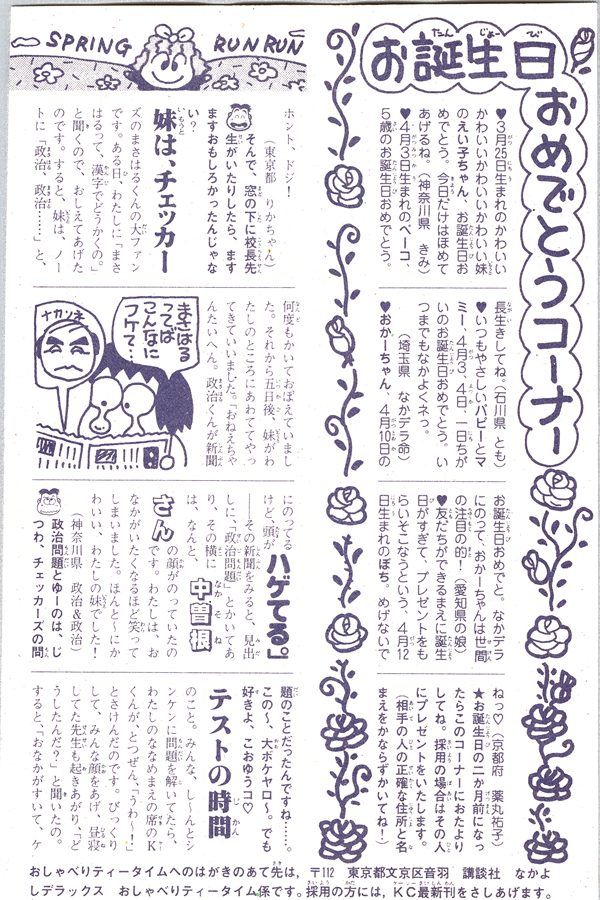 SPRING RUN RUN
お誕生日おめでとうコーナー
♥3月25日生まれのかわいい
かわいいかわいいかわいい妹
のえい子ちゃん、お誕生日お
めでとう。今日だけはほめて
あげるね。(神奈川県 きみ)
♥4月3日生まれのペーコ、
5歳のお誕生日おめでとう。
長生きしてね。(石川県 とも)
♥いつもやさしいパピーとマ
ミー、4月3、4日、一日ちが
いのお誕生日おめでとう。い
つまでもなかよくネっ。
(埼玉県 なかデラ命)
♥おかーちゃん、4月10日の
お誕生日おめでと。なかデラ
にのって、おかーちゃんは世間
の注目の的!(愛知県の娘)
♥友だちができるまえに誕生
日がすぎて、プレゼントをも
らいそこなうという、4月12
日生まれのぽち。めげないで
ねっ♡(京都府 薬丸祐子)
★お誕生日の二か月前になっ
たらこのコーナーにおたより
してね。採用の場合はその人
にプレゼントをいたします。
(相手の人の正確な住所と名
まえをかならずかいてね!)
ホント、ドジ!
(東京都 りかちゃん)
そんで、窓の下に校長先
生がいたりしたら、ます
ますおもしろかったんじゃな
い?
妹は、チェッカー
ズのまさはるくんの大ファン
です。ある日、わたしに「まさ
はるって、漢字でどうかくの。」
と聞くので、おしえてあげた
のです。すると、妹は、ノー
トに「政治、政治……」と、
何度もかいておぼえていまし
た。それから五日後、妹がわ
たしのところにあわててやっ
てきていいました。「おねえちゃ
んたいへん。政治くんが新聞
にのってる
けど、頭が
ハゲてる。」
――その新聞をみると、見出
しに、「政治問題」とかいてあ
り、その横に
は、なんと、
中曽根
さん
の顔がのっていたの
です。わたしは、お
なかがいたくなるほど笑って
しまいました。ほんと―にか
わいい、わたしの妹でした!
(神奈川県 政治&政治)
政治問題とゆーのは、じ
つわ、チェッカーズの問
題のことだったんですね……。
この〜、大ボケヤロ〜。でも
好きよ、こおゆうコ♡
テストの時間
のこと。みんな、し〜んとシ
ンケンに問題を解いてたら、
わたしのななめまえの席のK
くんが、とつぜん、「うわ〜!」
とさけんだのです。びっくり
して、みんな顔をあげ、昼寝
してた先生も起きあがり、「ど
うしたんだ?」と聞いたの。
すると、「おなかがすいて、ケ
ナカソネ
まさはる
ってば
こんなに
フケて…
おしゃべりティータイムへのはがきのあて先は、〒112 東京都文京区音羽 講談社 なかよ
しデラックス おしゃべりティータイム係です。採用の方には、KC最新刊をさしあげます。